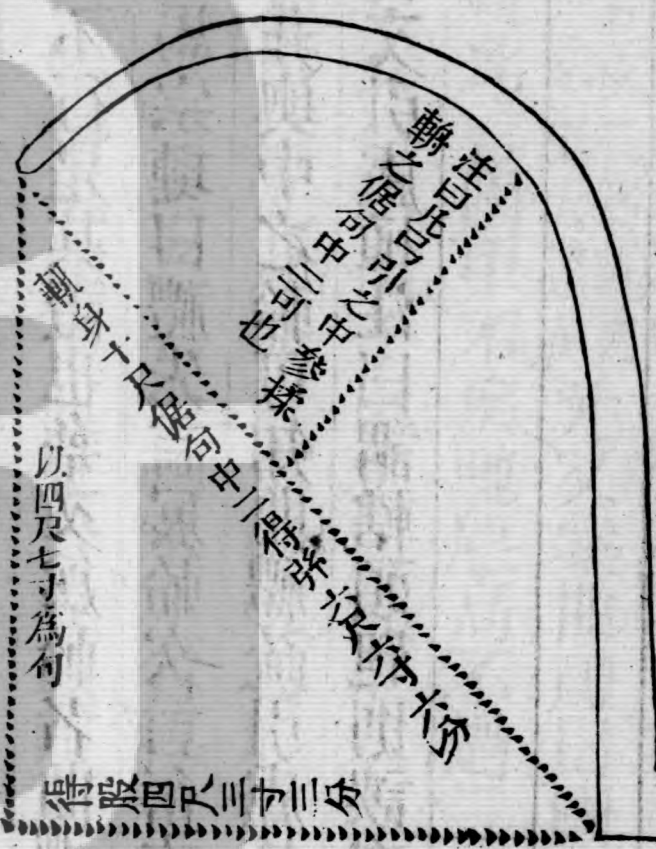 注曰凡弓引之中參揉
輈之倨句中二可也
輈身十尺倨句中二得弦六尺六寸六分
以四尺七寸爲句
得股四尺三寸三分